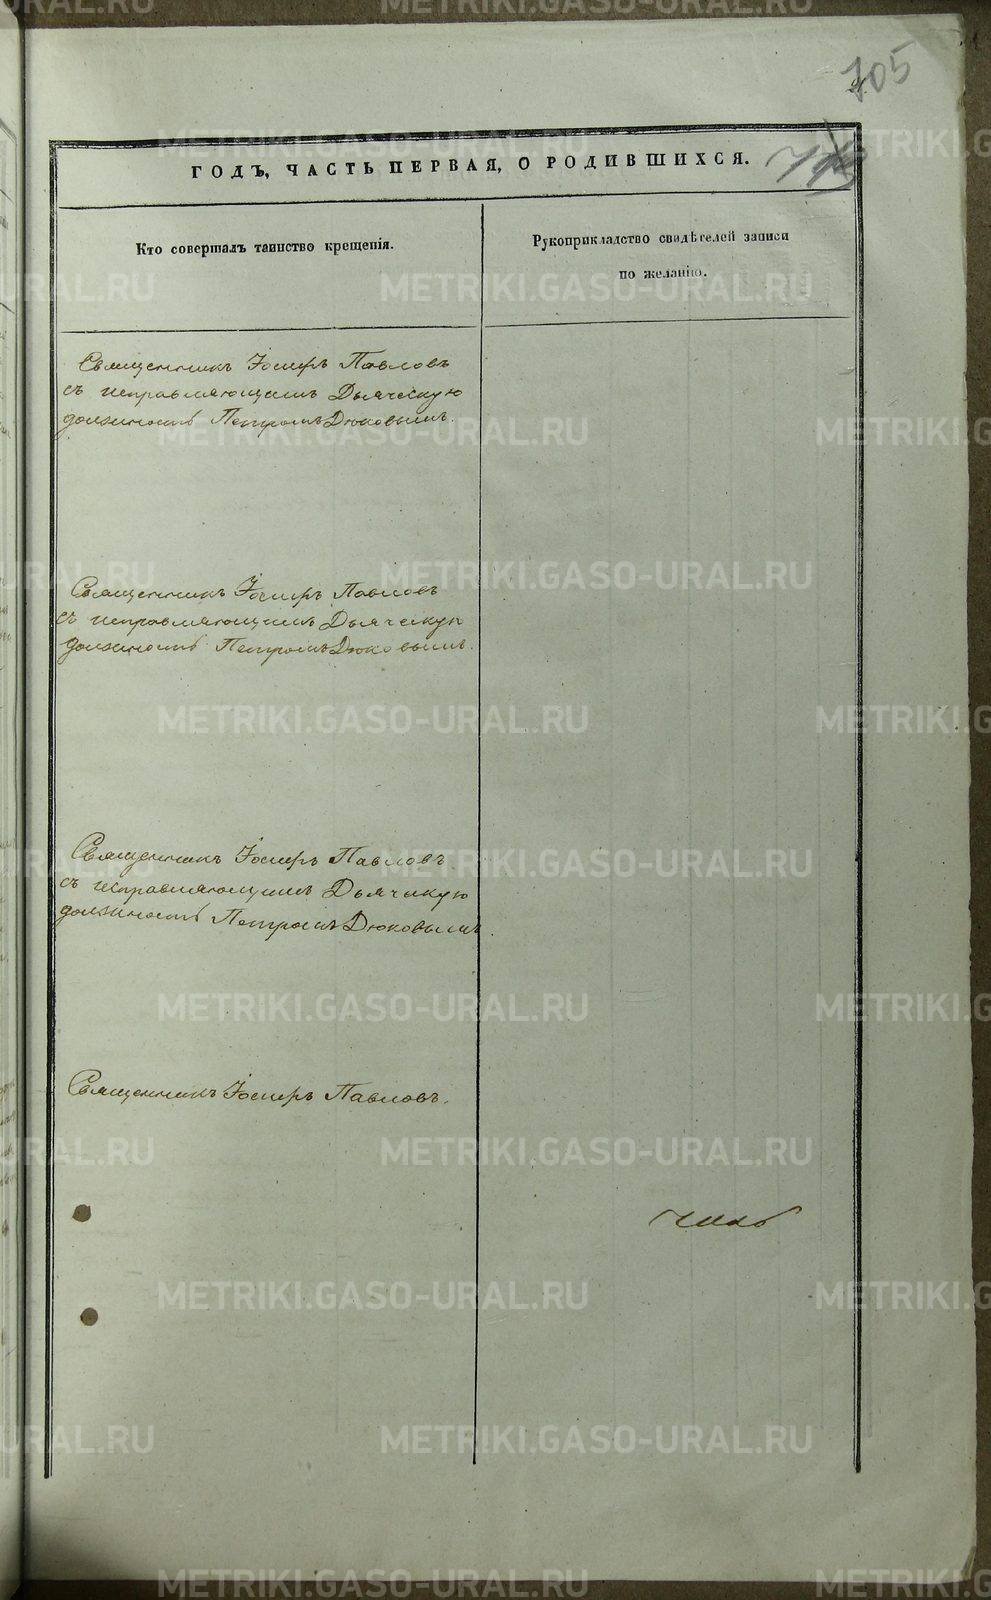 105
ГОДЪ, ЧАСТЬ ПЕРВАЯ, О РОДИВШИХСЯ.
Кто совершалъ таинство крещенія.
Рукоприкладство свидѣтелей записи
по желанію.
Священникъ Іосифъ Павловъ
съ исправляющимъ Дьяческую
должность Петромъ Дюковымъ.
Священникъ Іосифъ Павловъ
съ исправляющимъ Дьяческую
должность Петромъ Дюковымъ.
Священникъ Іосифъ Павловъ
съ исправляющимъ Дьячскую
должность Петромъ Дюковымъ.
Священникъ Іосифъ Павловъ.
METRIKI.GASO-URAL.RU